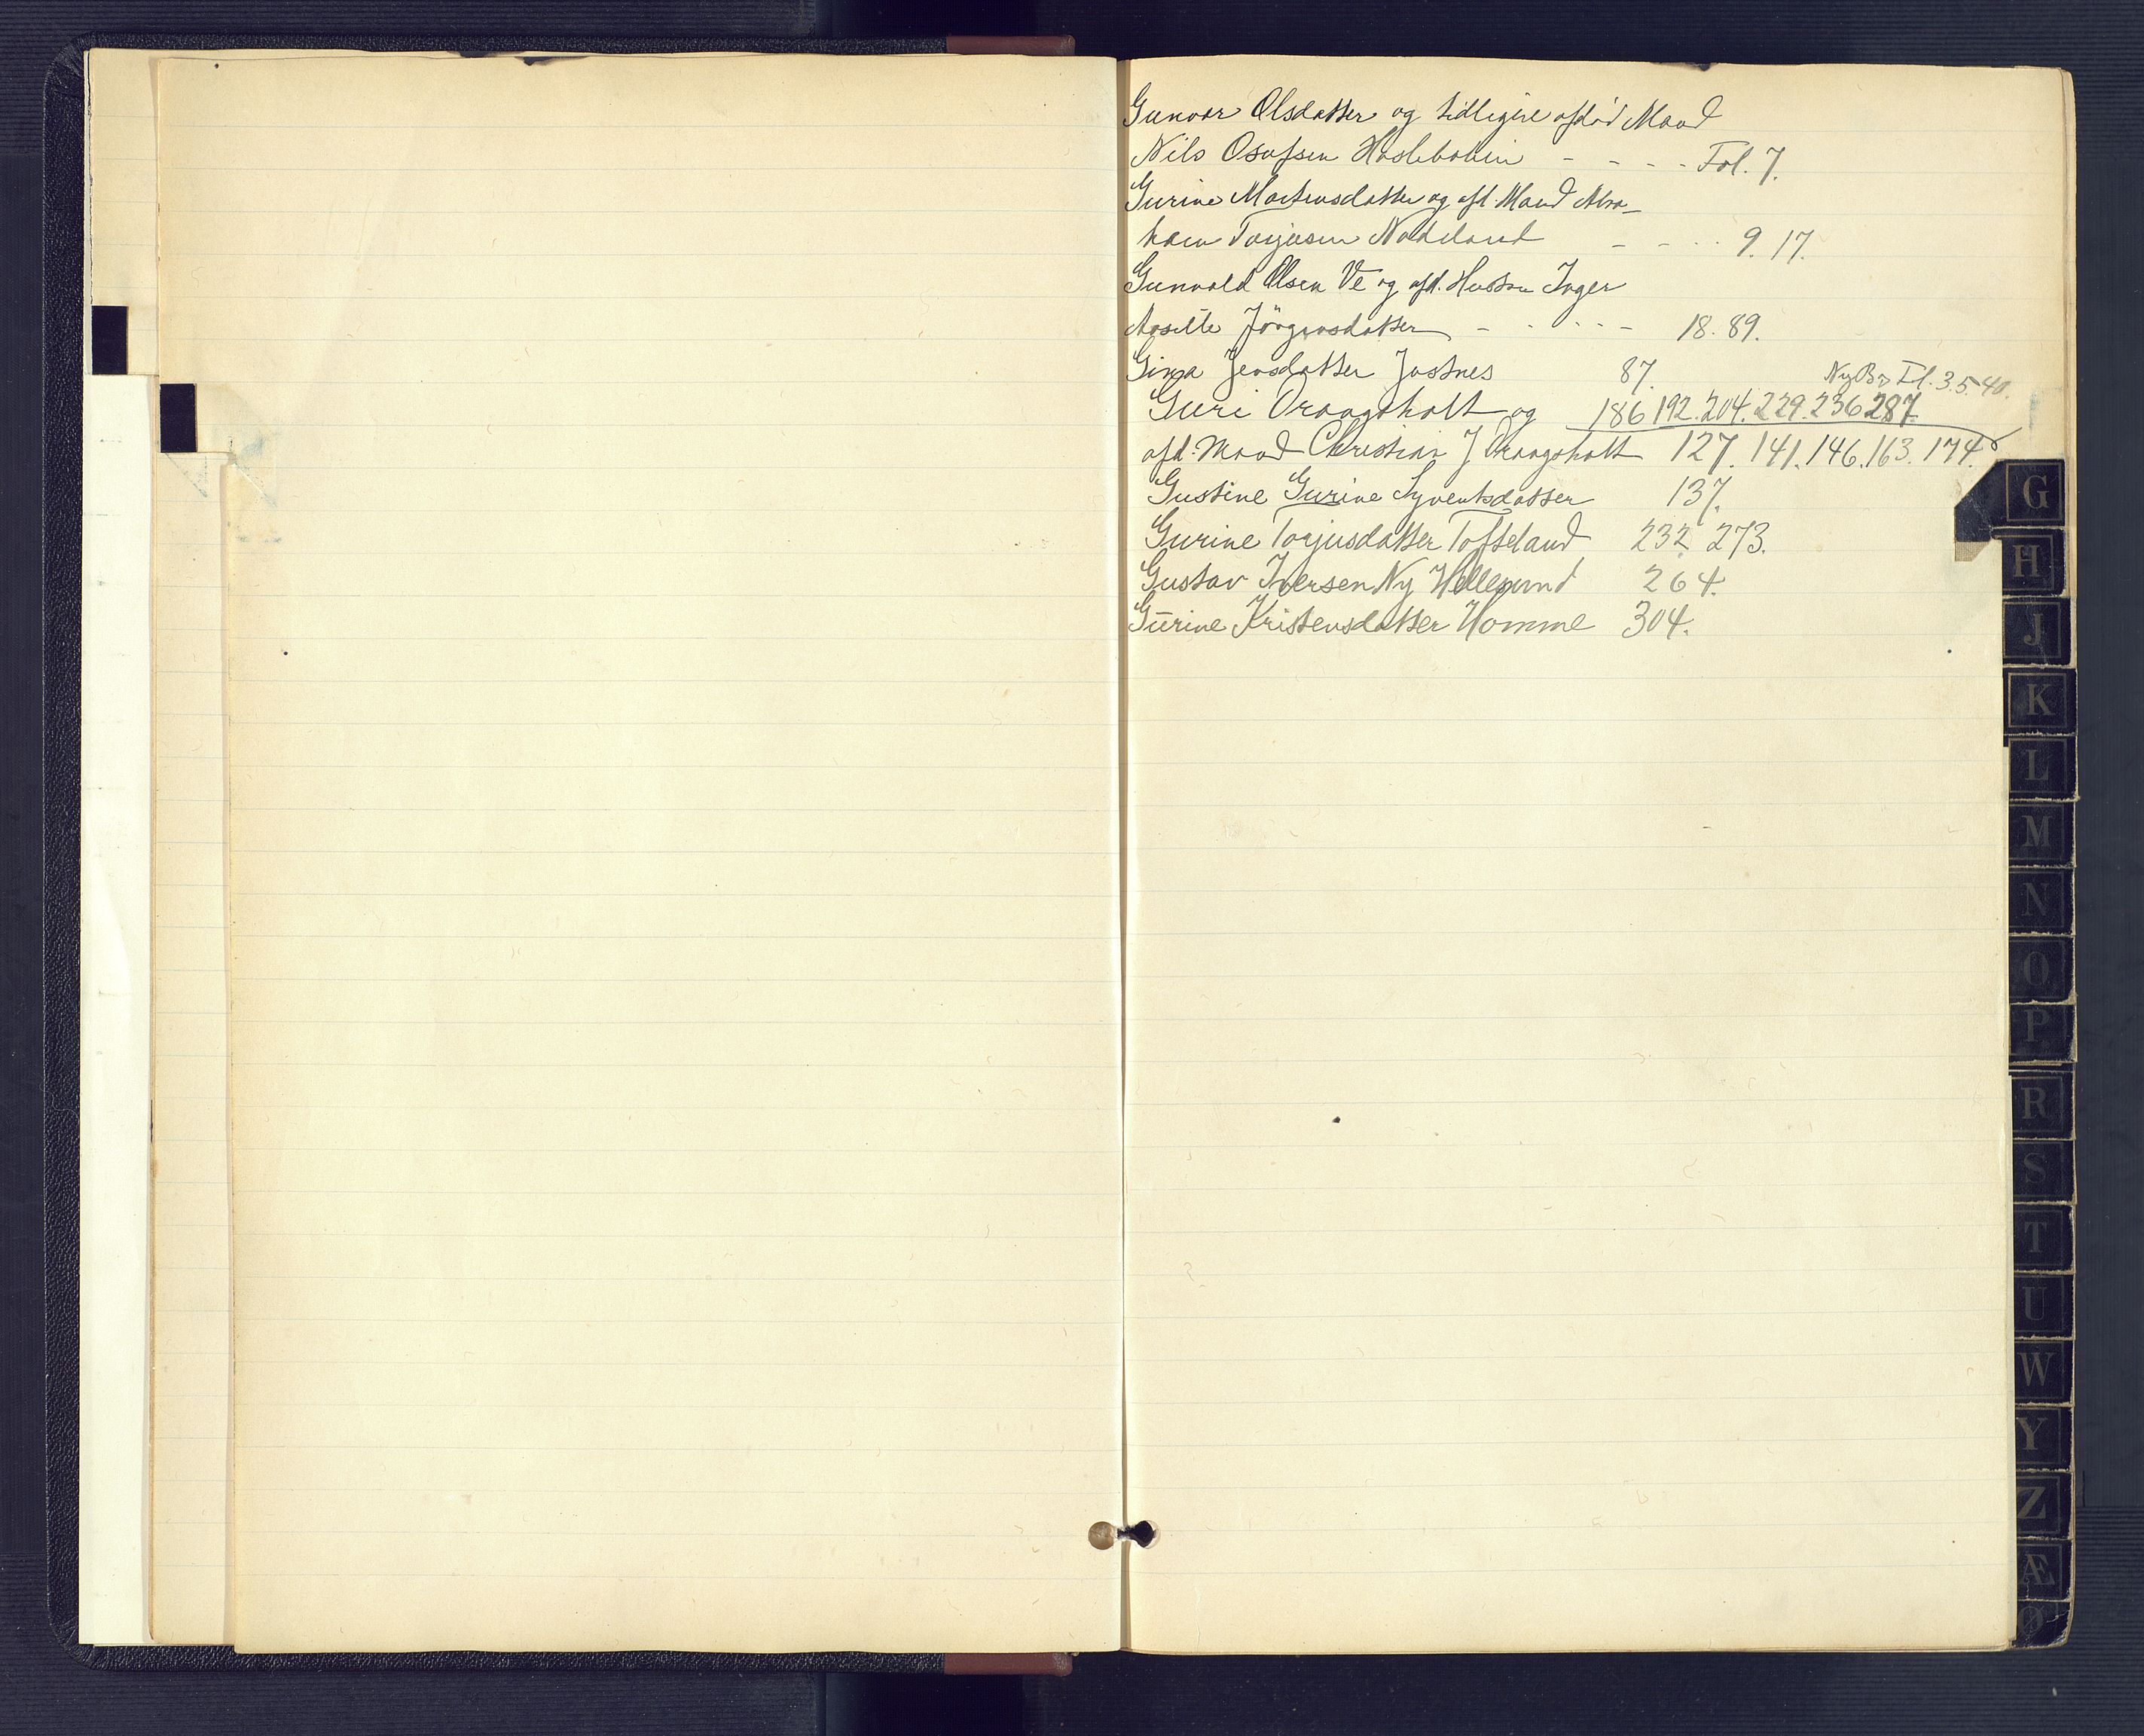 Gunvor Olsdatter og tidligere afdöd Mand
Nils Osufsen Haslebakken - - - - Fol. 7.
Gurine Martensdatter og afd. Mand Abra-
ham Torjusen Nodeland - - - - 9. 17.
Gunvald Olsen Ve og afd. Hustru Inger
Aasille Jörgensdatter - - - - - 18. 89.
Gina Jensdatter Justnes 87.
Ny Br Fl. 3. 5. 40.
Guri Drangsholt og 186 192. 204. 229. 236 287.
afd. Mand Christian J Drangsholt 127. 141. 146. 163. 174.
Gustine Gurine Syvertsdatter 137.
Gurine Torjusdatter Tofteland 232 273.
Gustav Iversen Ny Hellesund 264.
Gurine Kristensdatter Homme 304.
G
H
J
K
L
M
N
O
P
R
S
T
U
W
Y
Z
Æ
Ø